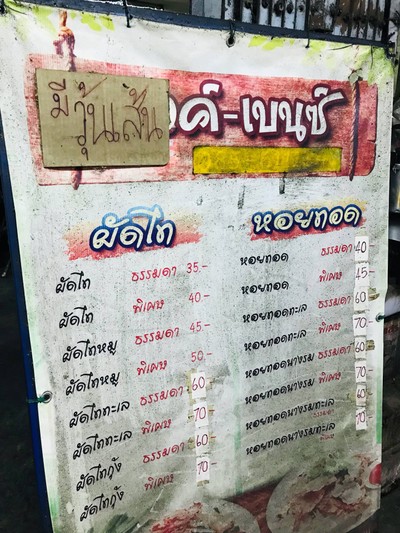 มี
วุ้นเส้น
งค์-เบนซ์
ผัดไท
ผัดไท ธรรมดา 35.-
ผัดไท พิเศษ 40.-
ผัดไทหมู ธรรมดา 45.-
ผัดไทหมู พิเศษ 50.-
ผัดไททะเล ธรรมดา 60.-
ผัดไททะเล พิเศษ 70.-
ผัดไทกุ้ง ธรรมดา 60.-
ผัดไทกุ้ง พิเศษ 70.-
หอยทอด
หอยทอด ธรรมดา 40.-
หอยทอด พิเศษ 45.-
หอยทอดทะเล ธรรมดา 60.-
หอยทอดทะเล พิเศษ 70.-
หอยทอดนางรม ธรรมดา 60.-
หอยทอดนางรม พิเศษ 70.-
หอยทอดนางรมทะเล ธรรมดา 60.-
หอยทอดนางรมทะเล พิเศษ 70.-